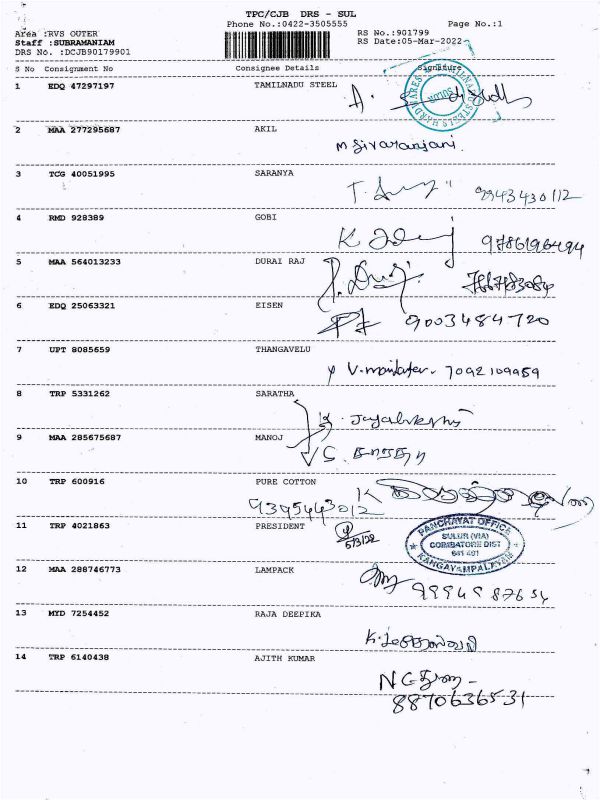 TPC/CJB DRS - SUL
Phone No.:0422-3505555
Page No.:1
Area :RVS OUTER
Staff :SUBRAMANIAM
DRS No. :DCJB90179901
RS No.:901799
RS Date:05-Mar-2022
S No Consignment No Consignee Details Signature
1 EDQ 47297197 TAMILNADU STEEL
2 MAA 277295687 AKIL
M Sivaranjani.
3 TCG 40051995 SARANYA
9943430112
4 RMD 928389 GOBI
9786196494
5 MAA 564013233 DURAI RAJ
6 EDQ 25063321 EISEN
9003484720
7 UPT 8085659 THANGAVELU
7092109959
8 TRP 5331262 SARATHA
9 MAA 285675687 MANOJ
10 TRP 600916 PURE COTTON
9395443012
11 TRP 4021863 PRESIDENT
5/3/22
PANCHAYAT OFFICE
SULUR (VIA)
COIMBATORE DIST
641 401
KANGAYAMPALAYAM
12 MAA 288746773 LAMPACK
13 MYD 7254452 RAJA DEEPIKA
14 TRP 6140438 AJITH KUMAR
8870636531